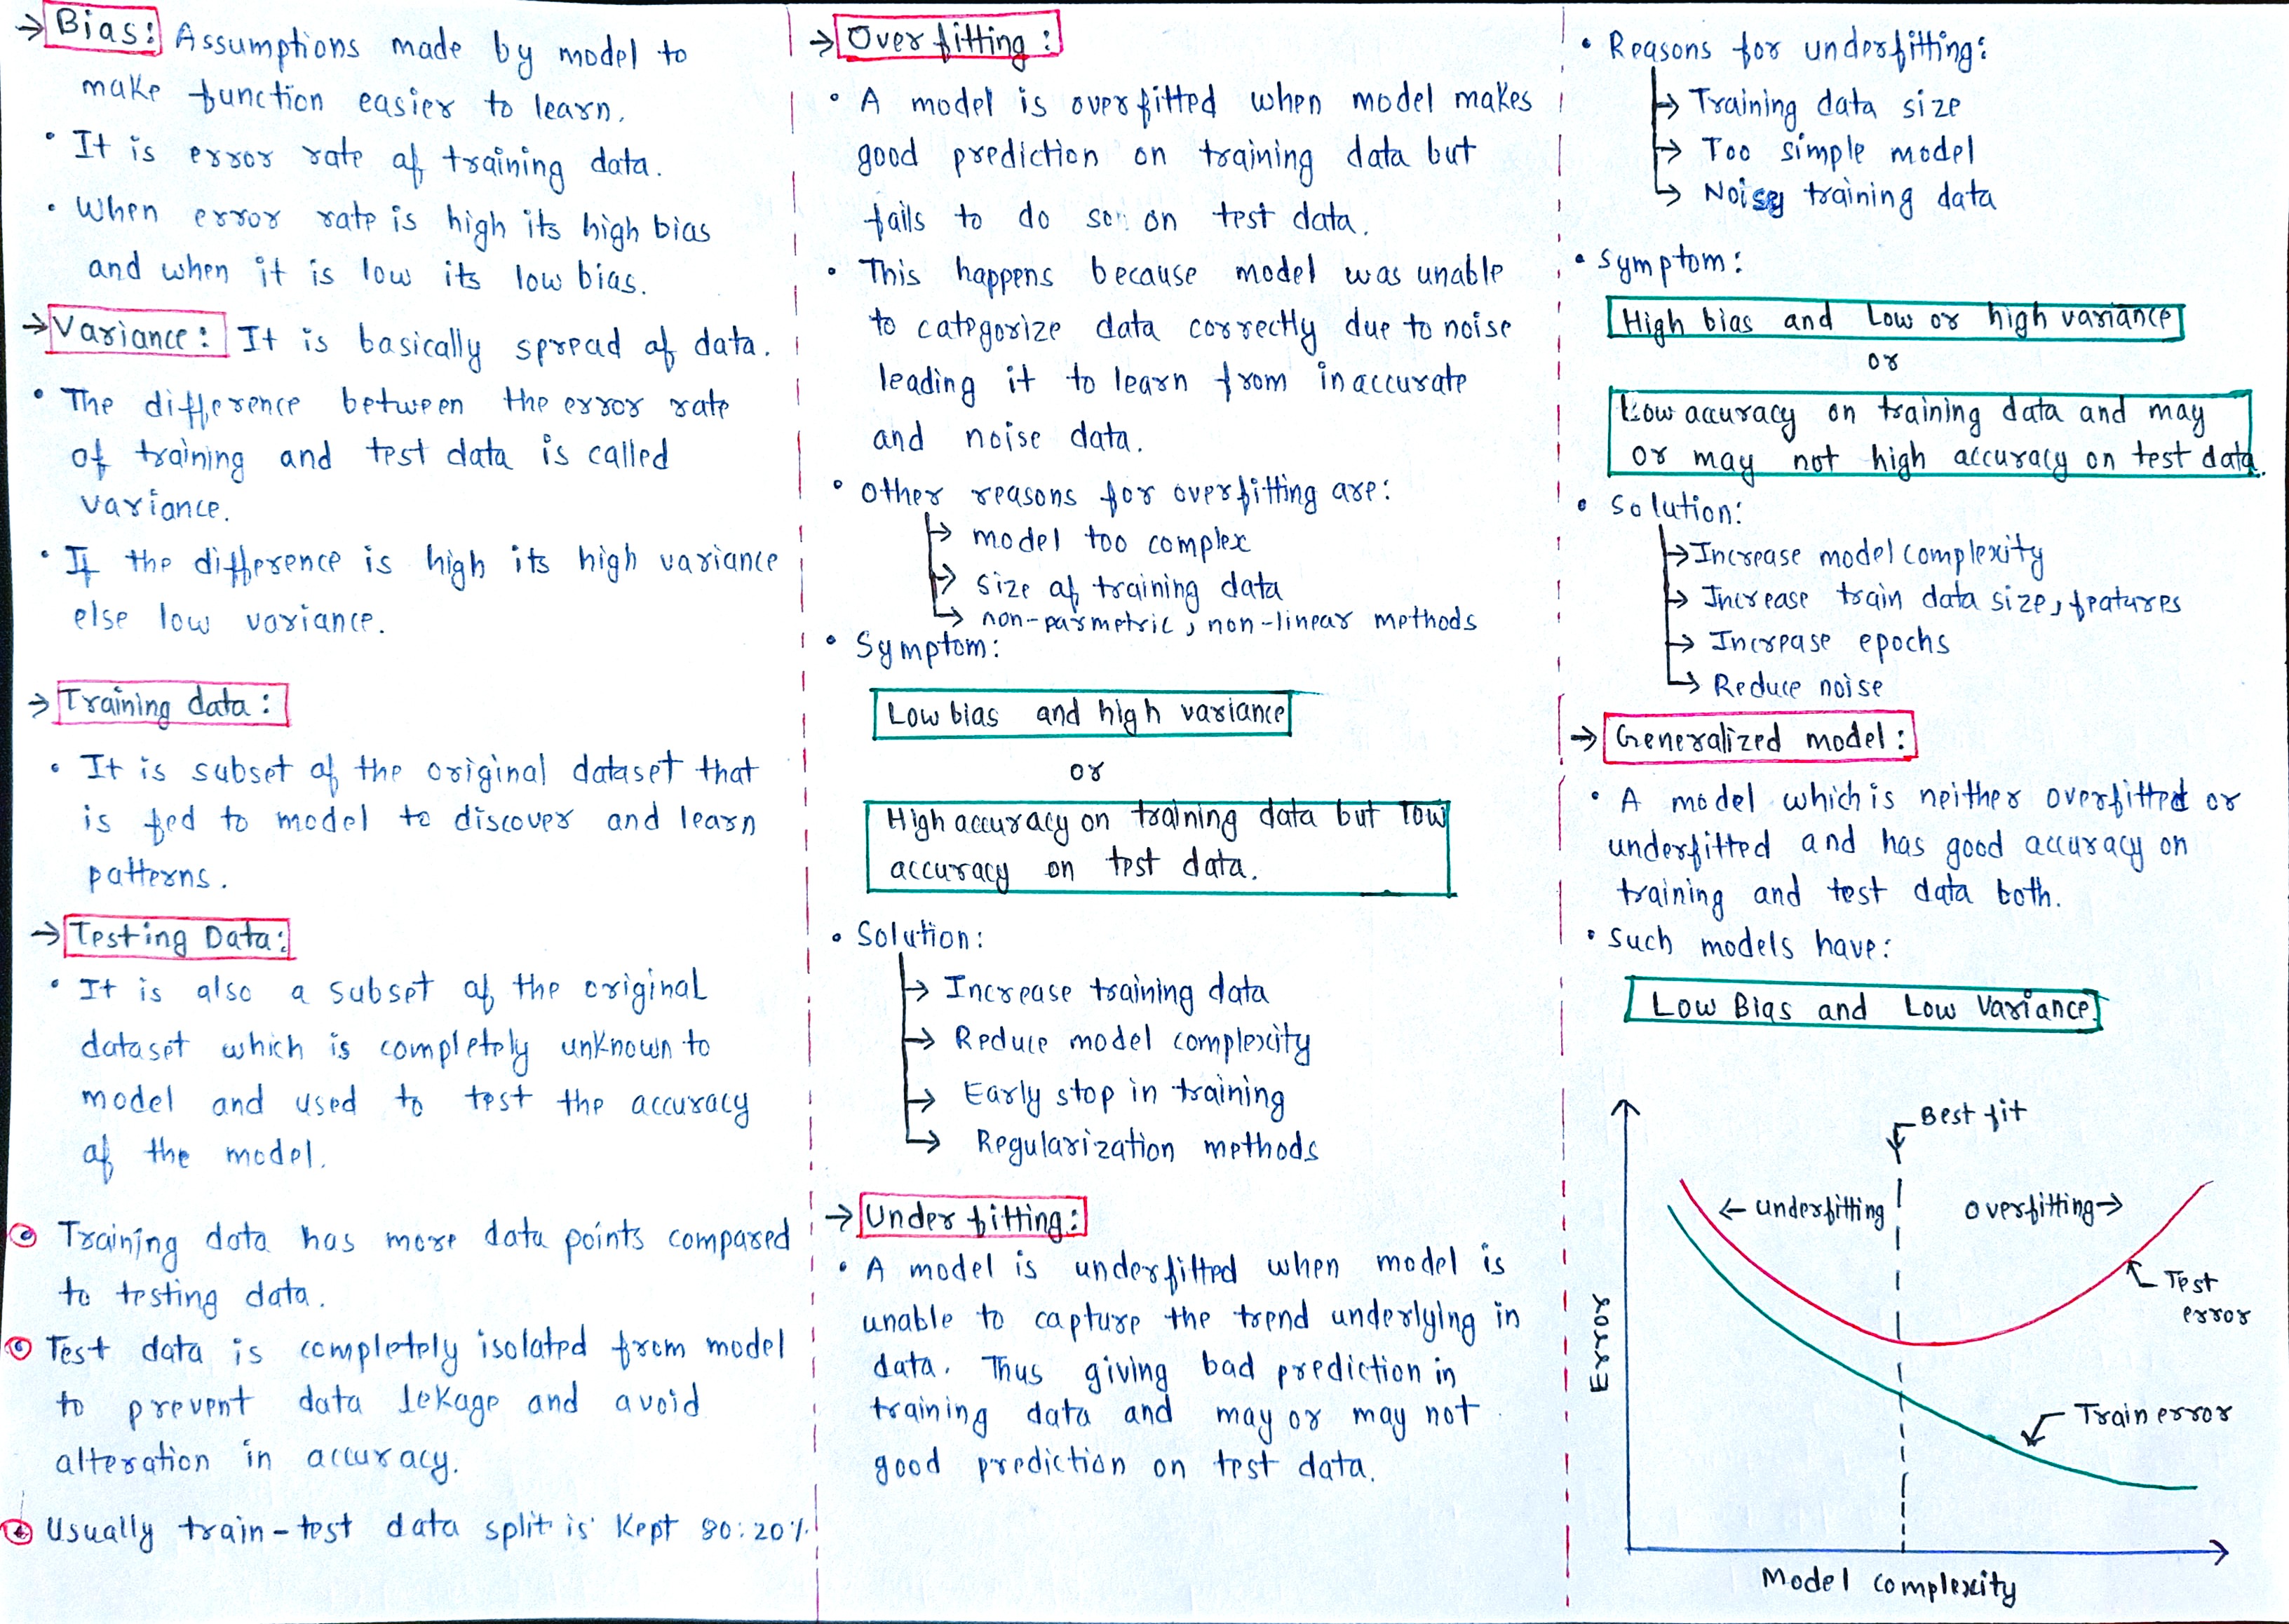 → Bias: Assumptions made by model to
make function easier to learn.
• It is error rate of training data.
• When error rate is high its high bias
and when it is low its low bias.
→ Variance: It is basically spread of data.
• The difference between the error rate
of training and test data is called
variance.
• If the difference is high its high variance
else low variance.
→ Training data:
• It is subset of the original dataset that
is fed to model to discover and learn
patterns.
→ Testing Data:
• It is also a subset of the original
dataset which is completely unknown to
model and used to test the accuracy
of the model.
Training data has more data points compared
to testing data.
Test data is completely isolated from model
to prevent data lekage and avoid
alteration in accuracy.
Usually train-test data split is kept 80:20%
→ Overfitting:
• A model is overfitted when model makes
good prediction on training data but
fails to do so on test data.
• This happens because model was unable
to categorize data correctly due to noise
leading it to learn from inaccurate
and noise data.
• Other reasons for overfitting are:
→ model too complex
→ size of training data
→ non-parmetric, non-linear methods
• Symptom:
Low bias and high variance
or
High accuracy on training data but low
accuracy on test data.
• Solution:
→ Increase training data
→ Reduce model complexity
→ Early stop in training
→ Regularization methods
→ Underfitting:
• A model is underfitted when model is
unable to capture the trend underlying in
data. Thus giving bad prediction in
training data and may or may not
good prediction on test data.
• Reasons for underfitting:
→ Training data size
→ Too simple model
→ Noisy training data
• Symptom:
High bias and Low or high variance
or
Low accuracy on training data and may
or may not high accuracy on test data.
• Solution:
→ Increase model complexity
→ Increase train data size, features
→ Increase epochs
→ Reduce noise
→ Generalized model:
• A model which is neither overfitted or
underfitted and has good accuracy on
training and test data both.
• Such models have:
Low Bias and Low Variance
Best fit
← underfitting
overfitting →
Test
error
Error
Train error
Model complexity